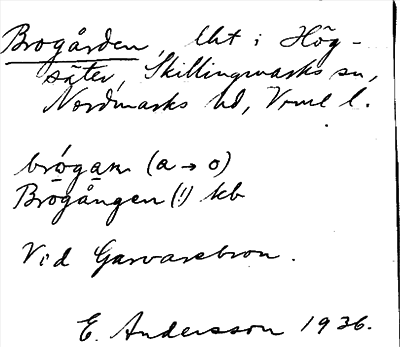 Brogården, lht i Hög-
säter, Skillingmarks sn,
Nordmarks hd, Vrml l.
brógan (a → o)
Brogången (!) kb
Vid Garvarebron.
E. Andersson 1936.